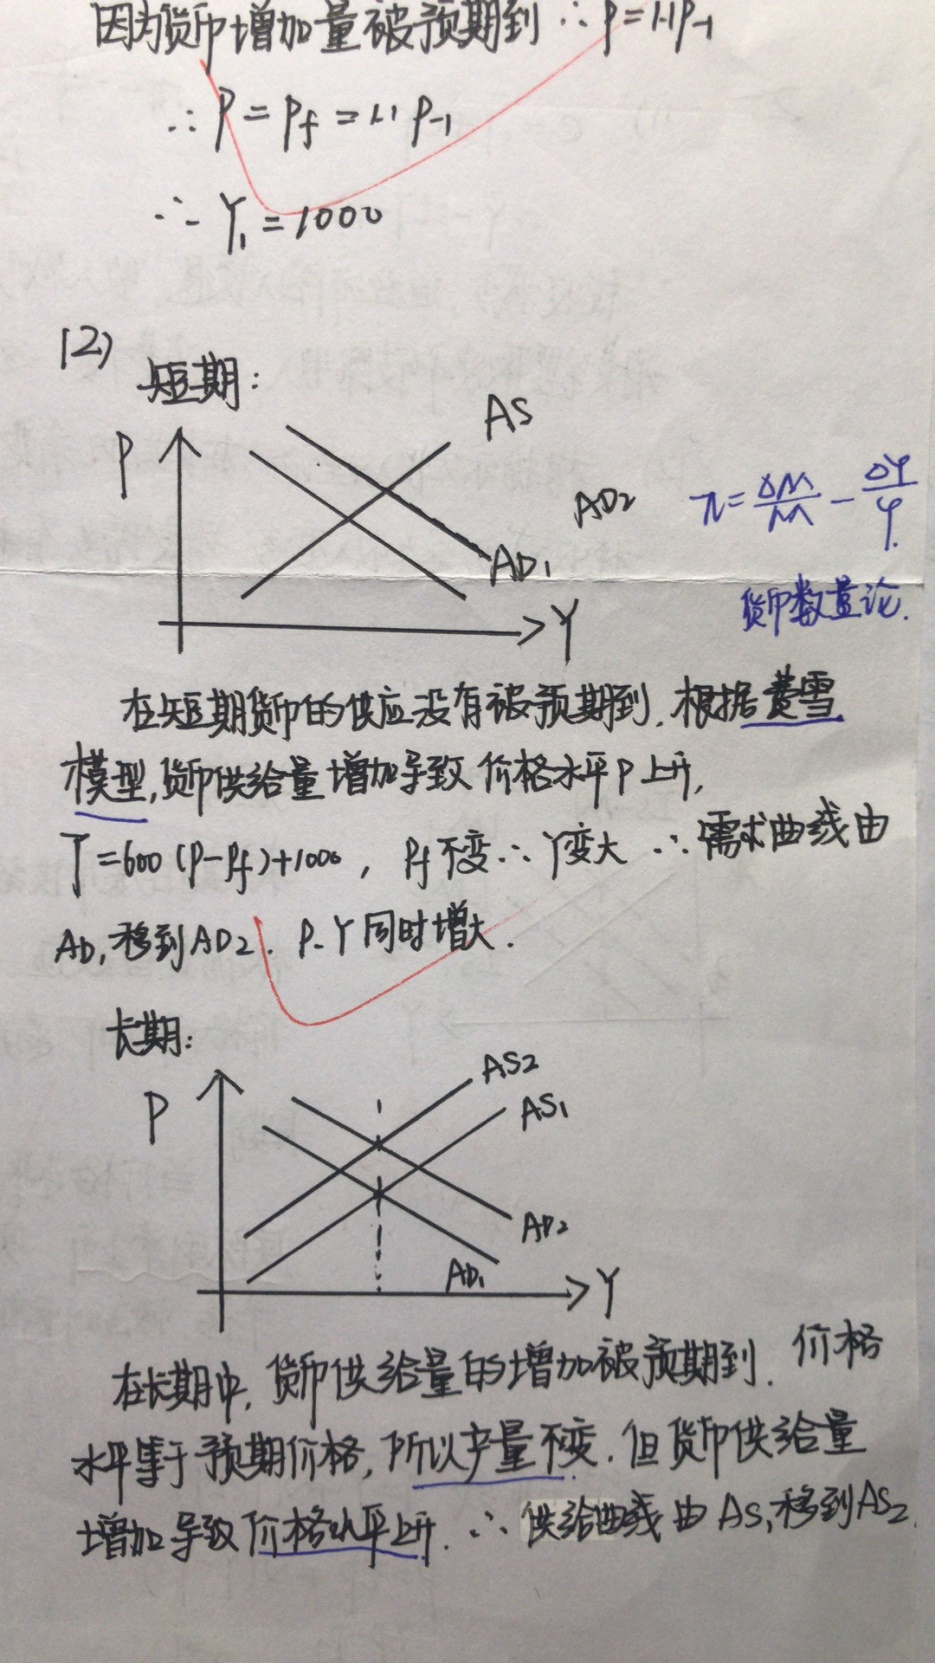 因为货币增加量被预期到 ∴ P=1.1P₋₁
∴ P = Pf = 1.1 P₋₁
∴ Y₁ = 1000
(2)
短期:
AS
P
AD2
π = ΔM/M - ΔY/Y.
AD1
Y
货币数量论.
在短期货币的供应没有被预期到. 根据费雪
模型, 货币供给量增加导致价格水平P上升,
Y=600(P-Pf)+1000, Pf不变 ∴ Y变大 ∴ 需求曲线由
AD₁移到AD2. P、Y同时增大.
长期:
AS2
P
AS1
AD2
AD1
Y
在长期中, 货币供给量的增加被预期到. 价格
水平等于预期价格, 所以产量不变. 但货币供给量
增加导致价格水平上升. ∴ 供给曲线由AS₁移到AS2.